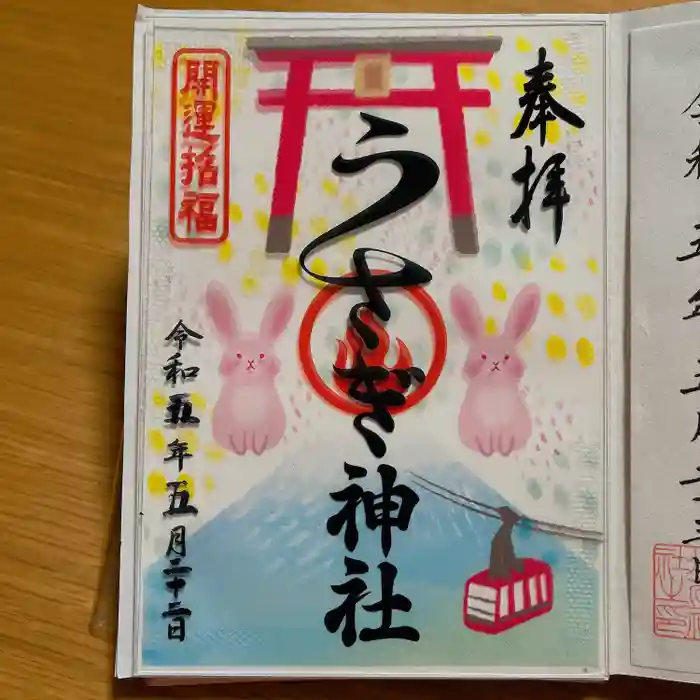 奉拝
うさぎ神社
開運招福
令和五年五月二十二日
令和五年五月十三日